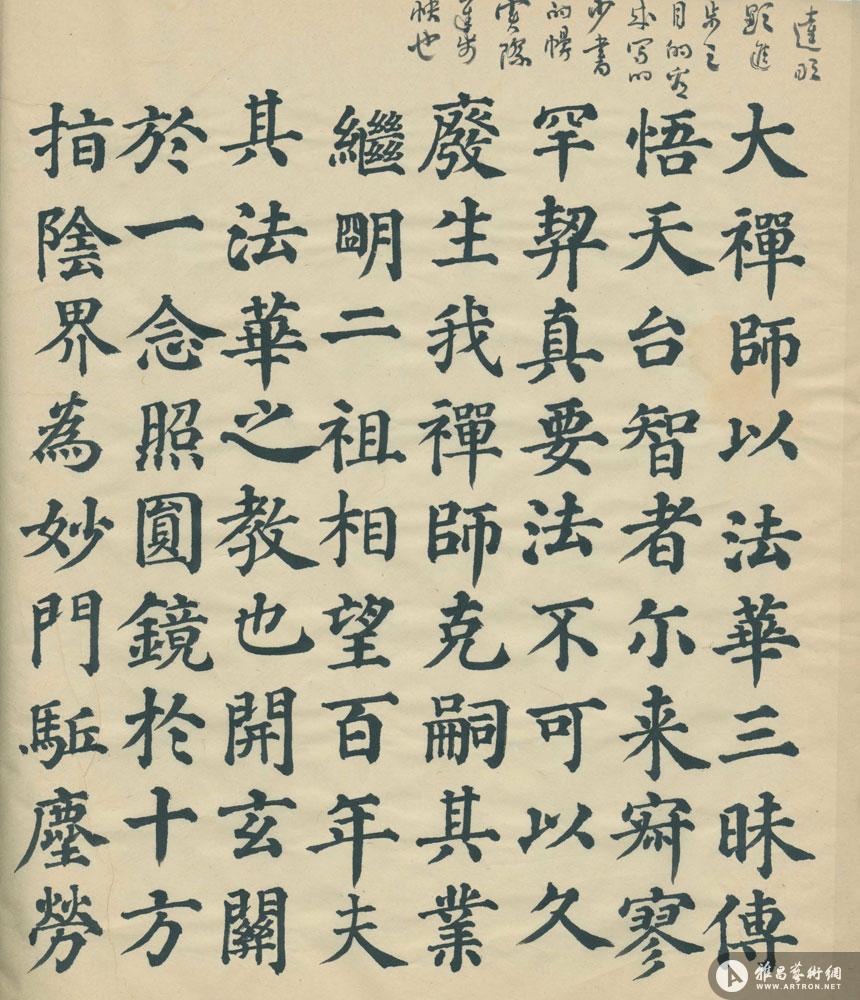 大禪師以法華三昧傳
悟天台智者尔来寂寥
罕契真要法不可以久
廢生我禪師克嗣其業
繼明二祖相望百年夫
其法華之教也開玄關
於一念照圓鏡於十方
指陰界為妙門駈塵勞
目的
步書
的慢
實際
快也
雅昌藝術網
WWW.ARTRON.NET